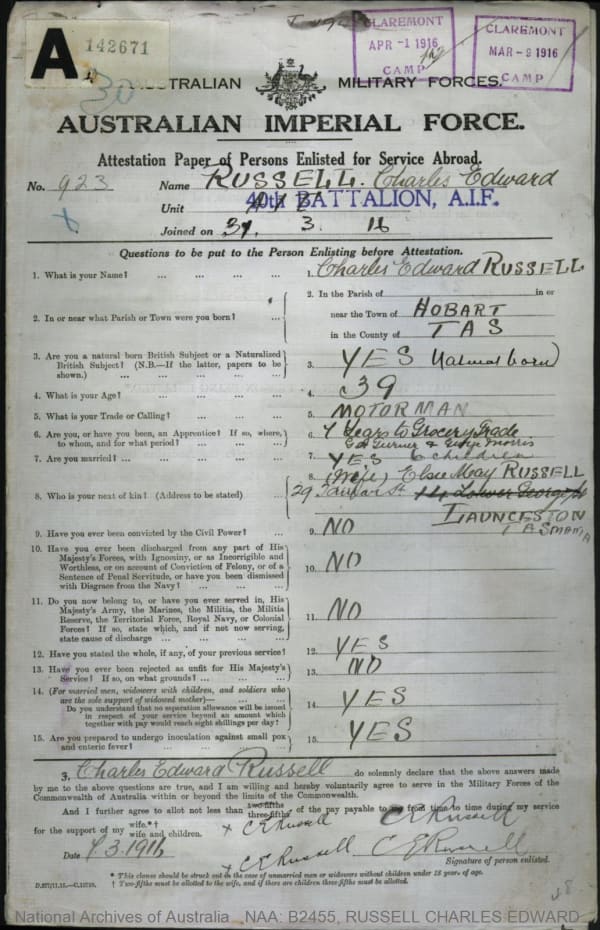 A 142671
30
CLAREMONT
APR -1 1916
CAMP
CLAREMONT
MAR -9 1916
CAMP
AUSTRALIAN MILITARY FORCES.
AUSTRALIAN IMPERIAL FORCE.
Attestation Paper of Persons Enlisted for Service Abroad.
No. 923 Name RUSSELL. Charles Edward
Unit 40th BATTALION, A.I.F.
Joined on 3. 16
Questions to be put to the Person Enlisting before Attestation.
1. What is your Name? ... ... ... ... 1. Charles Edward RUSSELL
2. In or near what Parish or Town were you born? ... 2. In the Parish of in or
near the Town of HOBART
in the County of TAS
3. Are you a natural born British Subject or a Naturalized
British Subject? (N.B.—If the latter, papers to be
shown.) ... ... ... ... 3. YES Natural born
4. What is your Age? ... ... ... ... 4. 39
5. What is your Trade or Calling? ... ... ... 5. MOTORMAN
6. Are you, or have you been, an Apprentice? If so, where,
to whom, and for what period? ... ... ... 6. 4 Years to Grocery Trade
Turner & Morris
7. Are you married? ... ... ... ... 7. YES 6 children
8. Who is your next of kin? (Address to be stated) ... 8. (Wife) Elsie May RUSSELL
29 St 14 Lower George St
LAUNCESTON
TASMANIA
9. Have you ever been convicted by the Civil Power? ... 9. NO
10. Have you ever been discharged from any part of His
Majesty's Forces, with Ignominy, or as Incorrigible and
Worthless, or on account of Conviction of Felony, or of a
Sentence of Penal Servitude, or have you been dismissed
with Disgrace from the Navy? ... ... ... 10. NO
11. Do you now belong to, or have you ever served in, His
Majesty's Army, the Marines, the Militia, the Militia
Reserve, the Territorial Force, Royal Navy, or Colonial
Forces? If so, state which, and if not now serving,
state cause of discharge ... ... ... ... 11. NO
12. Have you stated the whole, if any, of your previous service? 12. YES
13. Have you ever been rejected as unfit for His Majesty's
Service? If so, on what grounds? ... ... ... 13. NO
14. (For married men, widowers with children, and soldiers who
are the sole support of widowed mother)—
Do you understand that no separation allowance will be issued
in respect of your service beyond an amount which
together with pay would reach eight shillings per day? 14. YES
15. Are you prepared to undergo inoculation against small pox
and enteric fever? ... ... ... ... 15. YES
I, Charles Edward Russell do solemnly declare that the above answers made
by me to the above questions are true, and I am willing and hereby voluntarily agree to serve in the Military Forces of the
Commonwealth of Australia within or beyond the limits of the Commonwealth.
And I further agree to allot not less than two-fifths three-fifths of the pay payable to me from time to time during my service
for the support of my wife.*† wife and children. x C E Russell C E Russell
Date 9.3.1916 x C E Russell C E Russell
Signature of person enlisted.
* This clause should be struck out in the case of unmarried men or widowers without children under 18 years of age.
† Two-fifths must be allotted to the wife, and if there are children three-fifths must be allotted.
National Archives of Australia NAA: B2455, RUSSELL CHARLES EDWARD